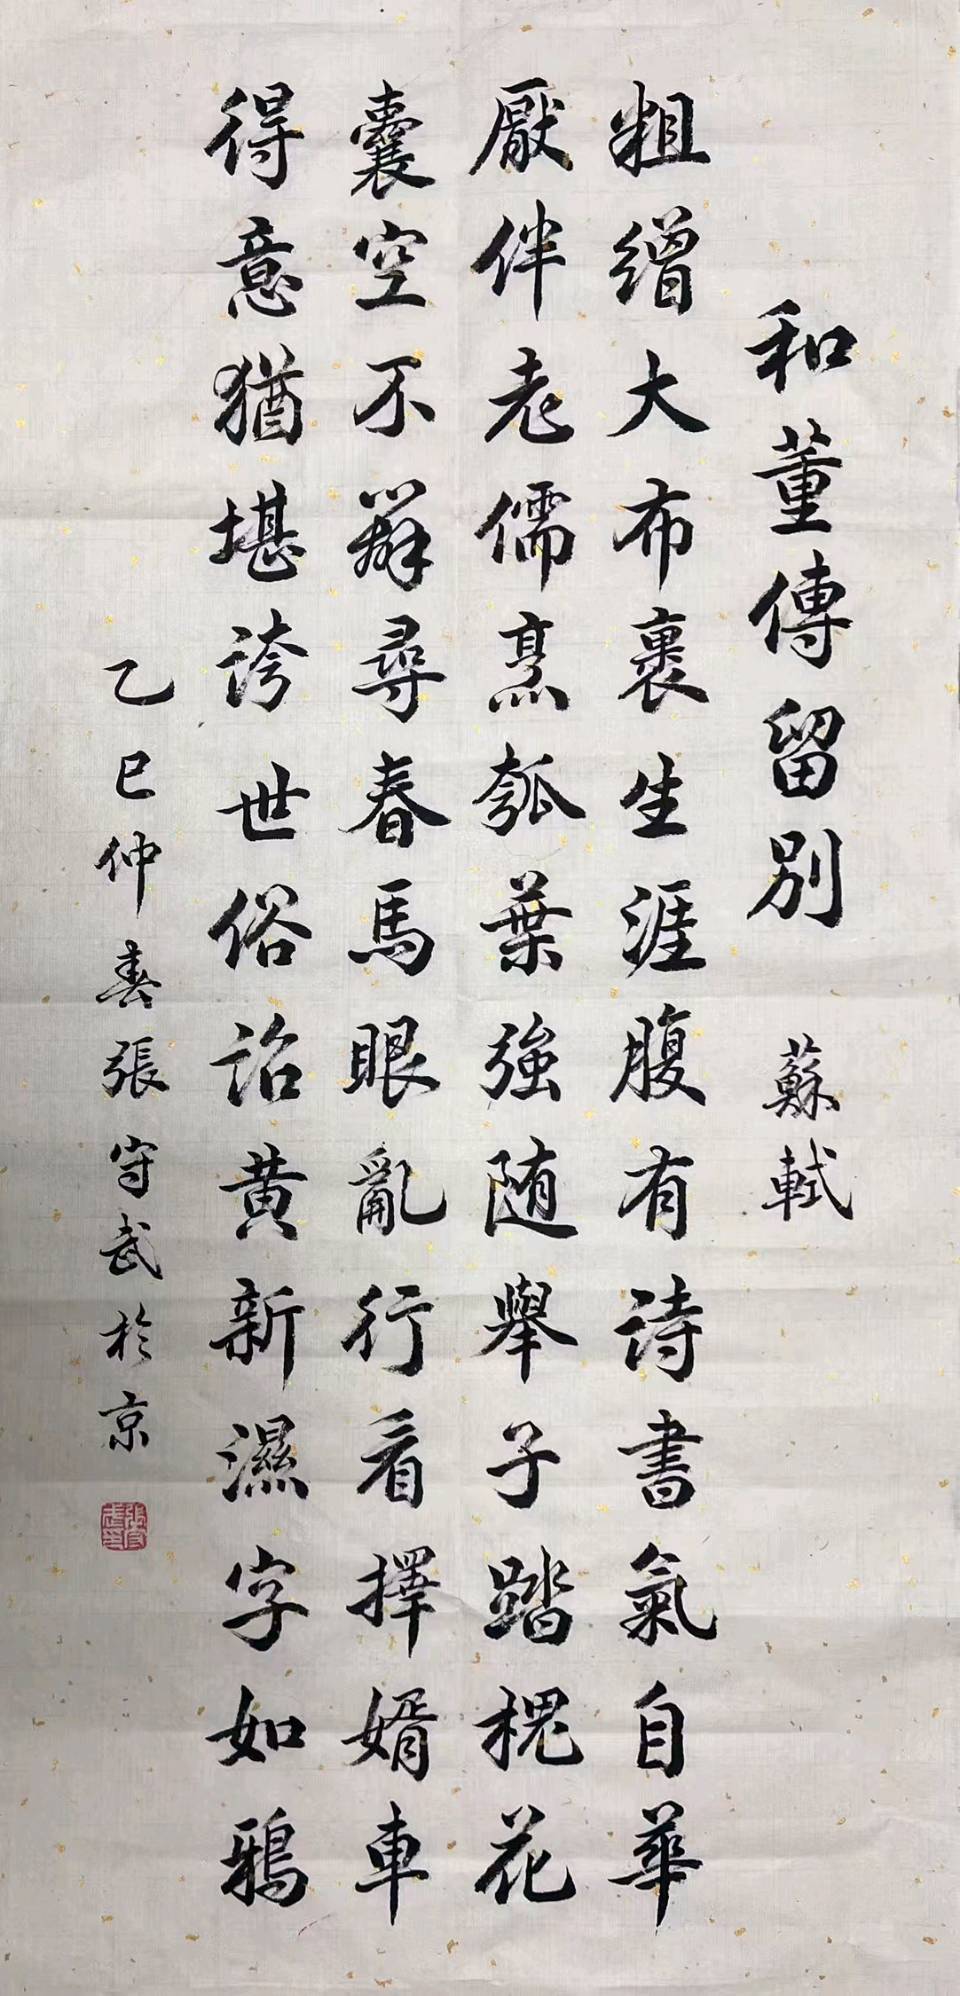 和董傳留別 蘇軾
粗繒大布裹生涯腹有詩書氣自華
厭伴老儒烹瓠葉強随舉子踏槐花
囊空不辦尋春馬眼亂行看擇婿車
得意猶堪誇世俗詔黄新濕字如鴉
乙巳仲春張守武於京